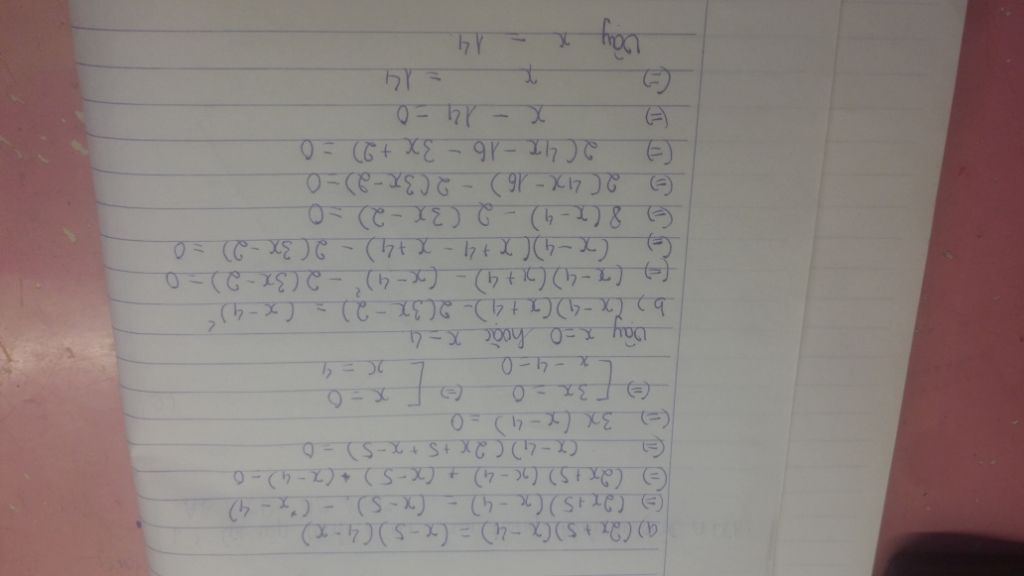 a) (2x+5)(x-4) = (x-5)(4-x)
(=) (2x+5)(x-4) = (x-5). -(x-4)
(=) (2x+5)(x-4) + (x-5) + (x-4) = 0
(=) (x-4)(2x+5+x-5) = 0
(=) 3x(x-4) = 0
(=) [ 3x = 0 (=) [ x = 0
x-4=0 x = 4
Vậy x=0 hoặc x=4
b) (x-4)(x+4) - 2(3x-2) = (x-4)²
(=) (x-4)(x+4) - (x-4)² - 2(3x-2) = 0
(=) (x-4)(x+4-x+4) - 2(3x-2) = 0
(=) 8(x-4) - 2(3x-2) = 0
(=) 2(4x-16) - 2(3x-2) = 0
(=) 2(4x-16-3x+2) = 0
(=) x - 14 = 0
(=) x = 14
Vậy x = 14